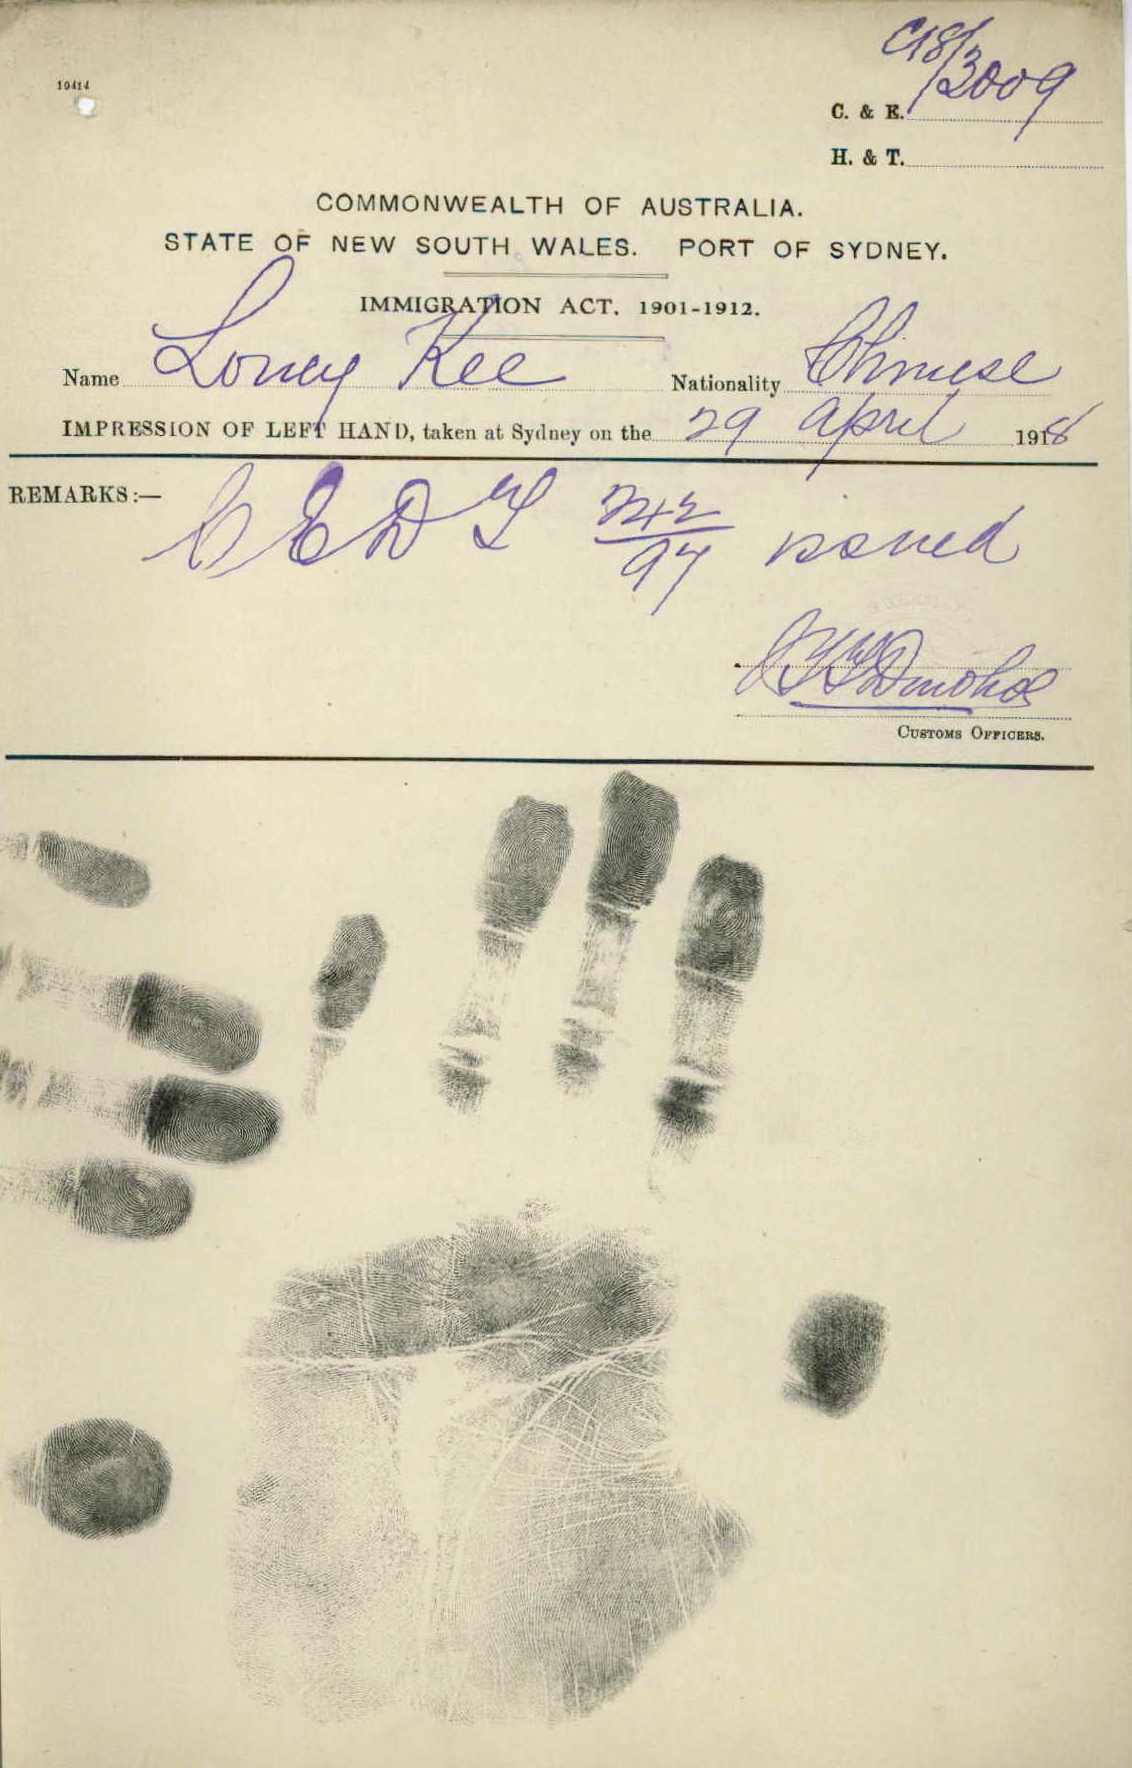 10414
C18/3009
C. & E.
H. & T.
COMMONWEALTH OF AUSTRALIA.
STATE OF NEW SOUTH WALES. PORT OF SYDNEY.
IMMIGRATION ACT, 1901-1912.
Name Loney Kee Nationality Chinese
IMPRESSION OF LEFT HAND, taken at Sydney on the 29 April 1918
REMARKS:— C E D T 242/97 issued
Donohoe
CUSTOMS OFFICERS.